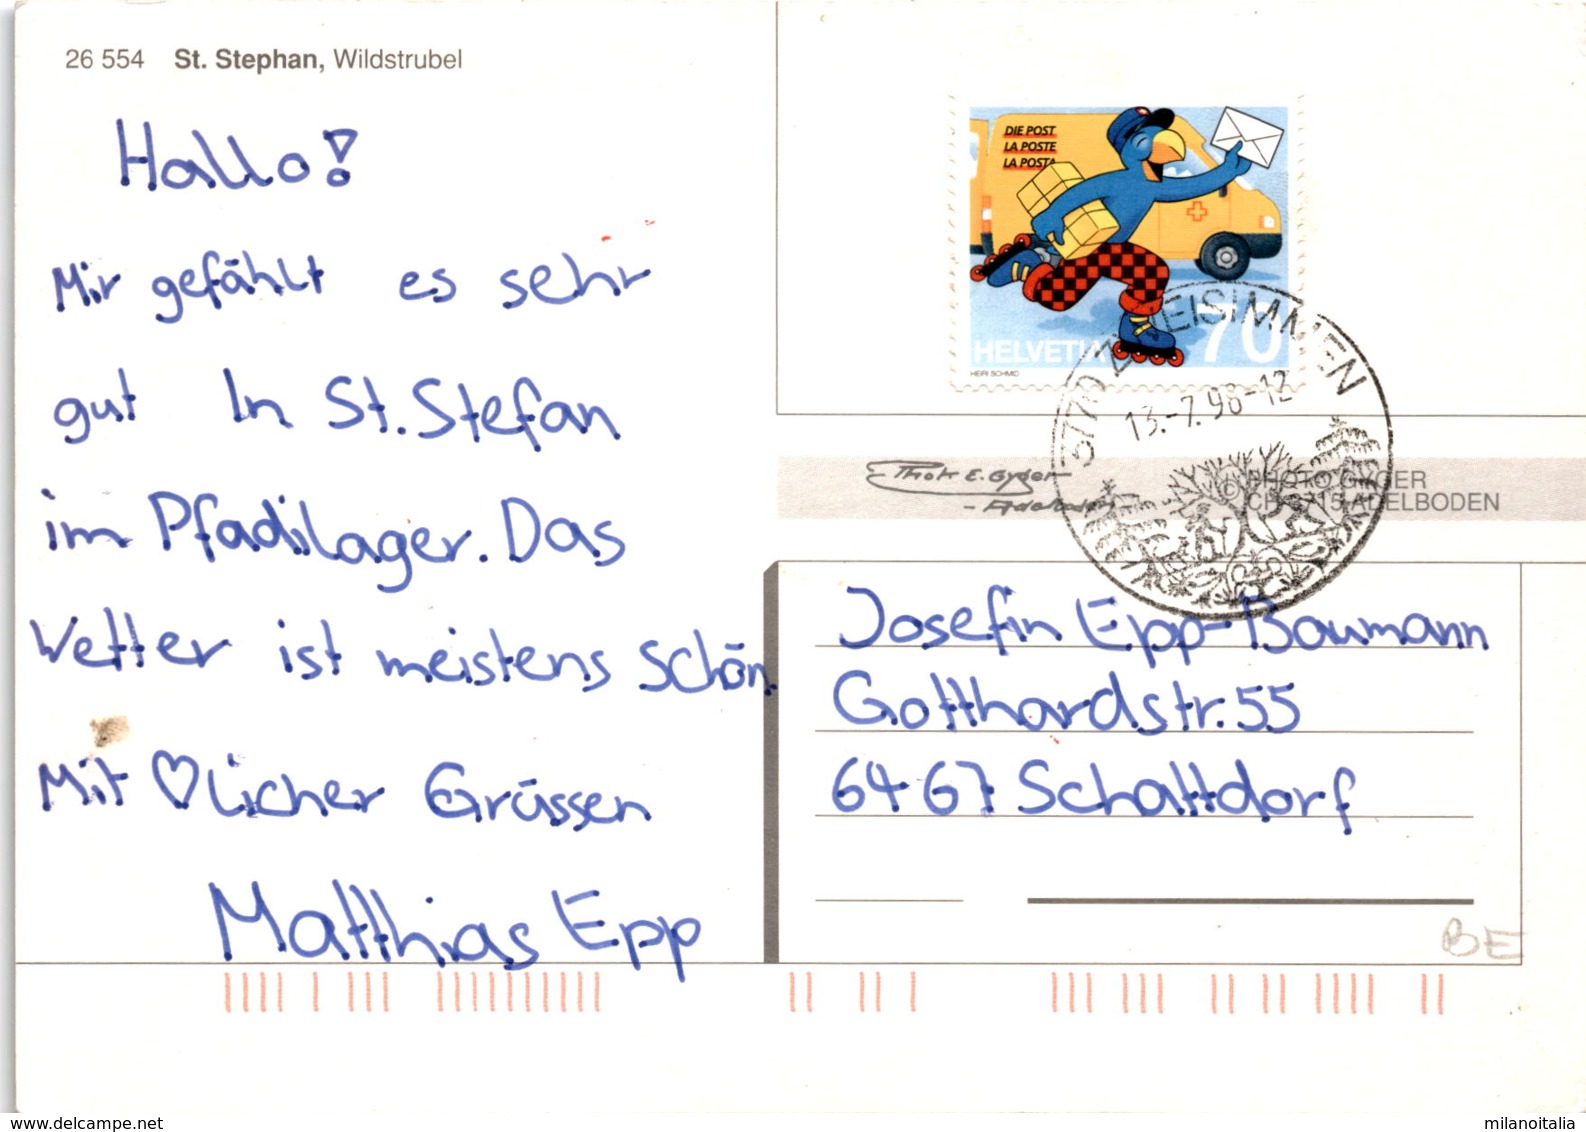 26 554 St. Stephan, Wildstrubel
Hallo!
Mir gefählt es sehr
gut In St. Stefan
im Pfadilager. Das
Wetter ist meistens schön
Mit ♡licher Grüssen
Matthias Epp
DIE POST
LA POSTE
LA POSTA
HELVETIA 70
HEIRI SCHMID
3770 ZWEISIMMEN
13.-7.98-12
Photo E. Gyger
- Adelboden
© PHOTO GYGER
CH-3715 ADELBODEN
Josefin Epp-Baumann
Gotthardstr. 55
6467 Schattdorf
BE
www.delcampe.net
milanoitalia